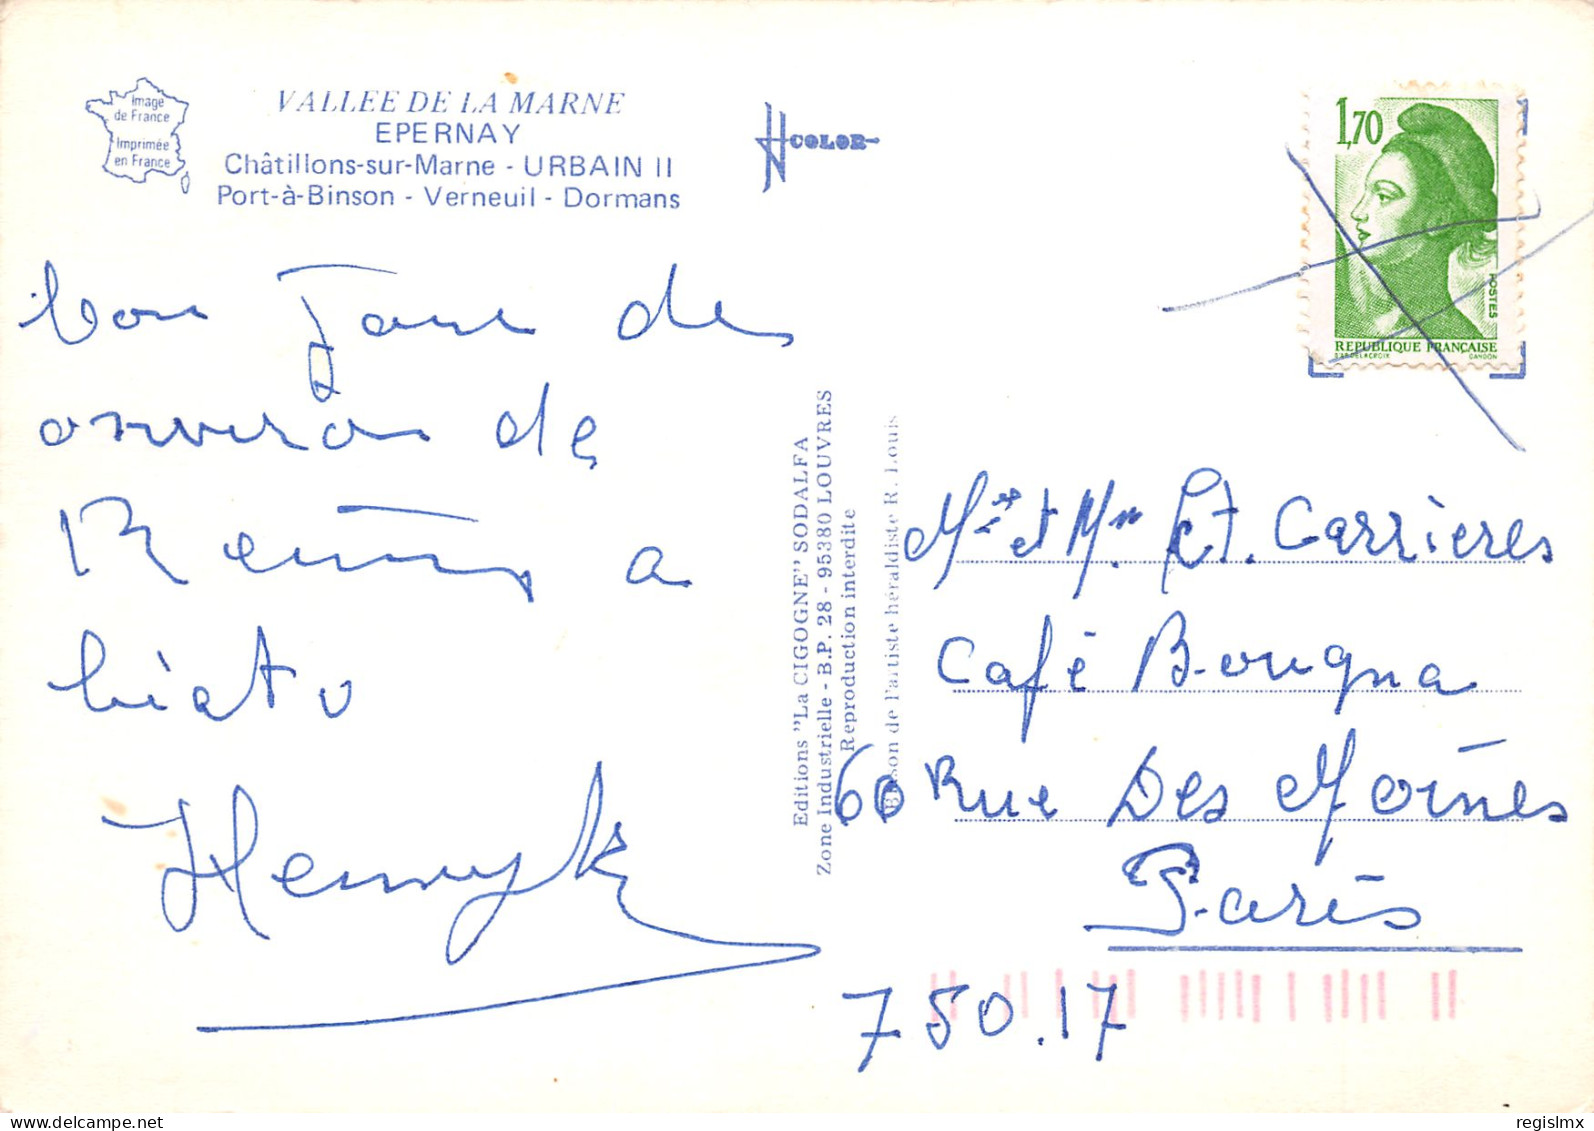 Image
de France
Imprimée
en France
VALLEE DE LA MARNE
EPERNAY
Châtillons-sur-Marne - URBAIN II
Port-à-Binson - Verneuil - Dormans
COLOR
1,70
POSTES
REPUBLIQUE FRANÇAISE
D'AP. DELACROIX GANDON
bon Jour des
environ de
Reims a
bientu
Henryk
Editions "La CIGOGNE" SODALFA
Zone Industrielle - B.P. 28 - 95380 LOUVRES
Reproduction interdite
Blason de l'artiste héraldiste R. Louis
Mr et Mm Et. Carrieres
Café Bougna
60 Rue Des Moines
Paris
750.17
delcampe.net
regislmx